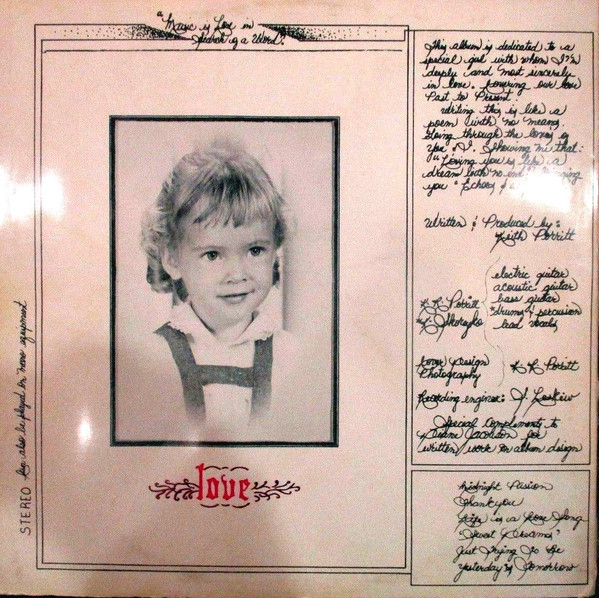 "Music is Love in
Search of a Word."
This album is dedicated to a
special girl with whom I'm
deeply and most sincerely
in love. our love
Past to Present.
Writing this is like a
poem with no means.
Going through the loves of
You & I. Showing me that:
"Loving you is like a
dream with no end"
you "Echoes
Written & Produced by:
Keith Porritt
electric guitar
acoustic guitar
bass guitar
*drums & percussion
lead vocals
K K Porritt
Cover Design
Photography
K K Porritt
Recording engineer:
Special compliments to
for
written work on album design
love
STEREO can also be played on mono equipment
Midnight Passion
Thank you
Life is a Love Song
"Sweet Dreams"
Just Trying To Be
Yesterday's Tomorrow